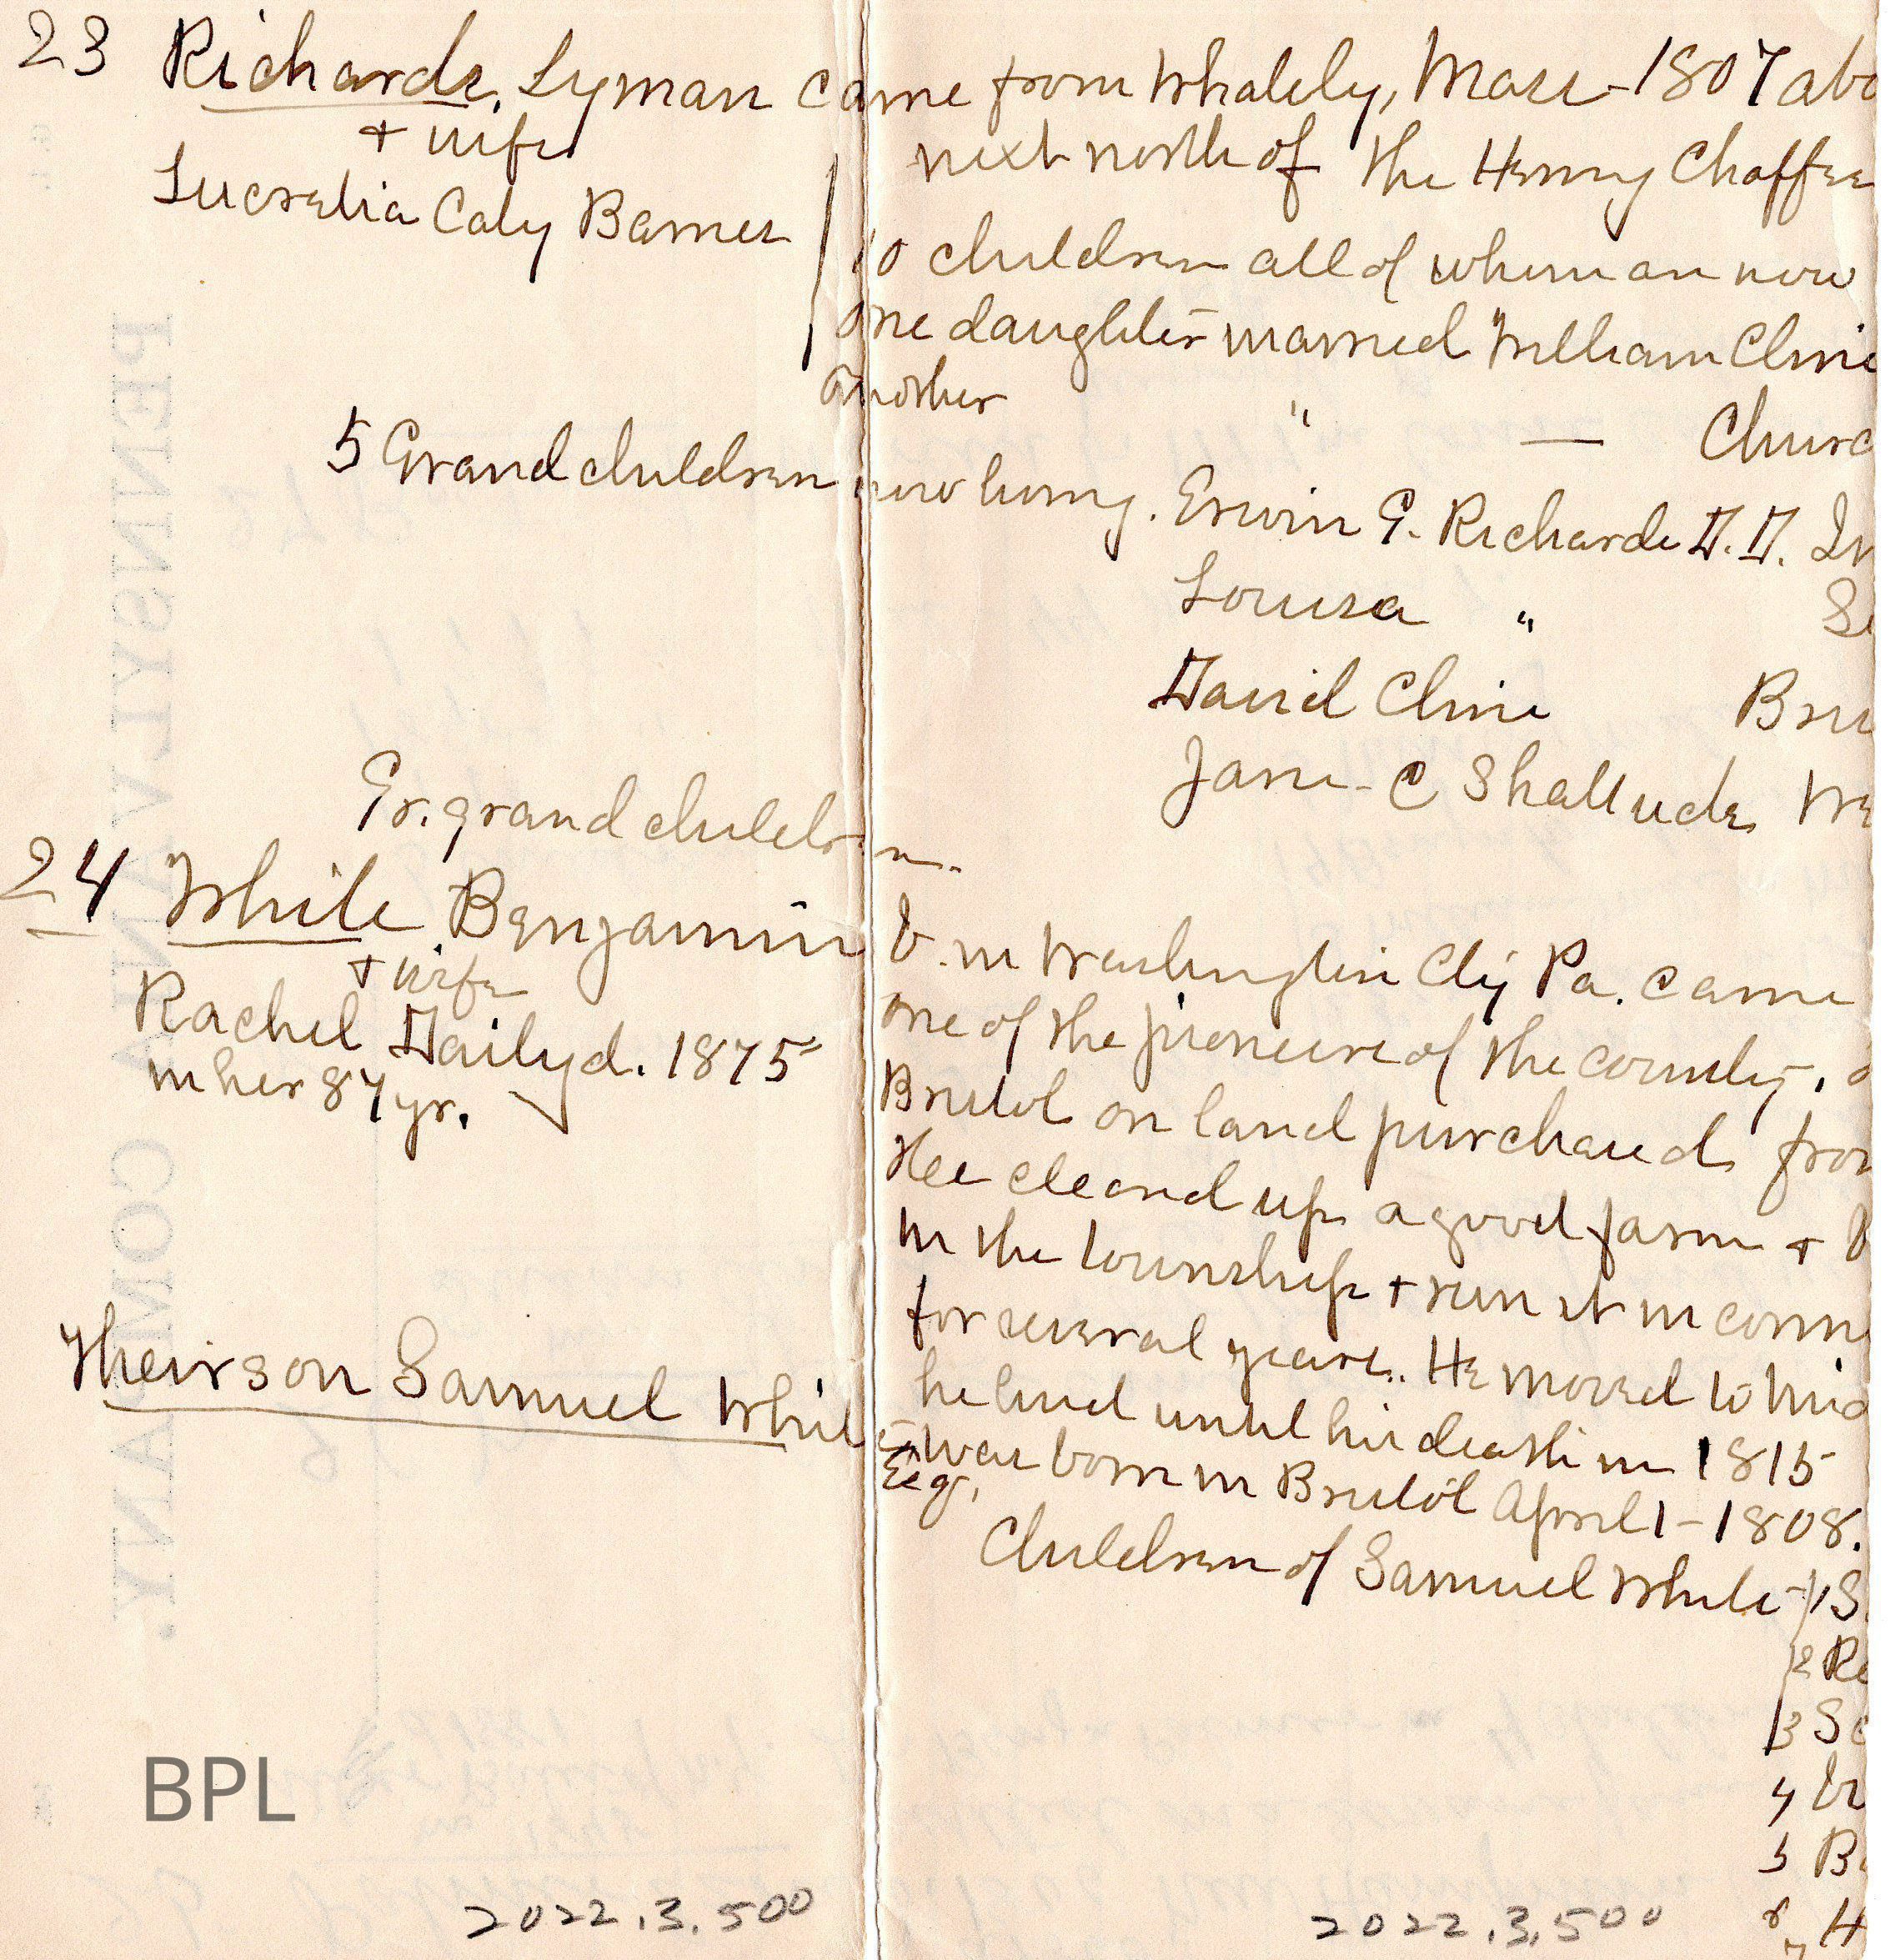 23 Richards, Lyman came from Whately, Mass-1807 abo
+ wife next north of the Henry Chaffee
Lucretia Caty Barnes
10 children all of whom are now
One daughter married William Cline
Another " — Churc
5 Grandchildren now living. Erwin E. Richards D.D.
Louisa "
David Cline Bru
Jane C Shattuck
Gr. grandchildren
24 White, Benjamin b. in Washington Cty Pa. came
+ wife one of the pioneers of the county.
Rachel Daily d. 1875 Bristol on land purchased from
in her 87 yr. Hee cleared up a good farm +
in the township + run it in conn
for several years. He moved to
he lived until his death in 1815
Their son Samuel White was born in Bristol April 1-1808.
Esq.
Children of Samuel White - 1 S
2 Re
3 S
4
5 B
6 H
7
BPL
2022.3.500 2022.3.500
PENNSYLVANIA COMPANY.